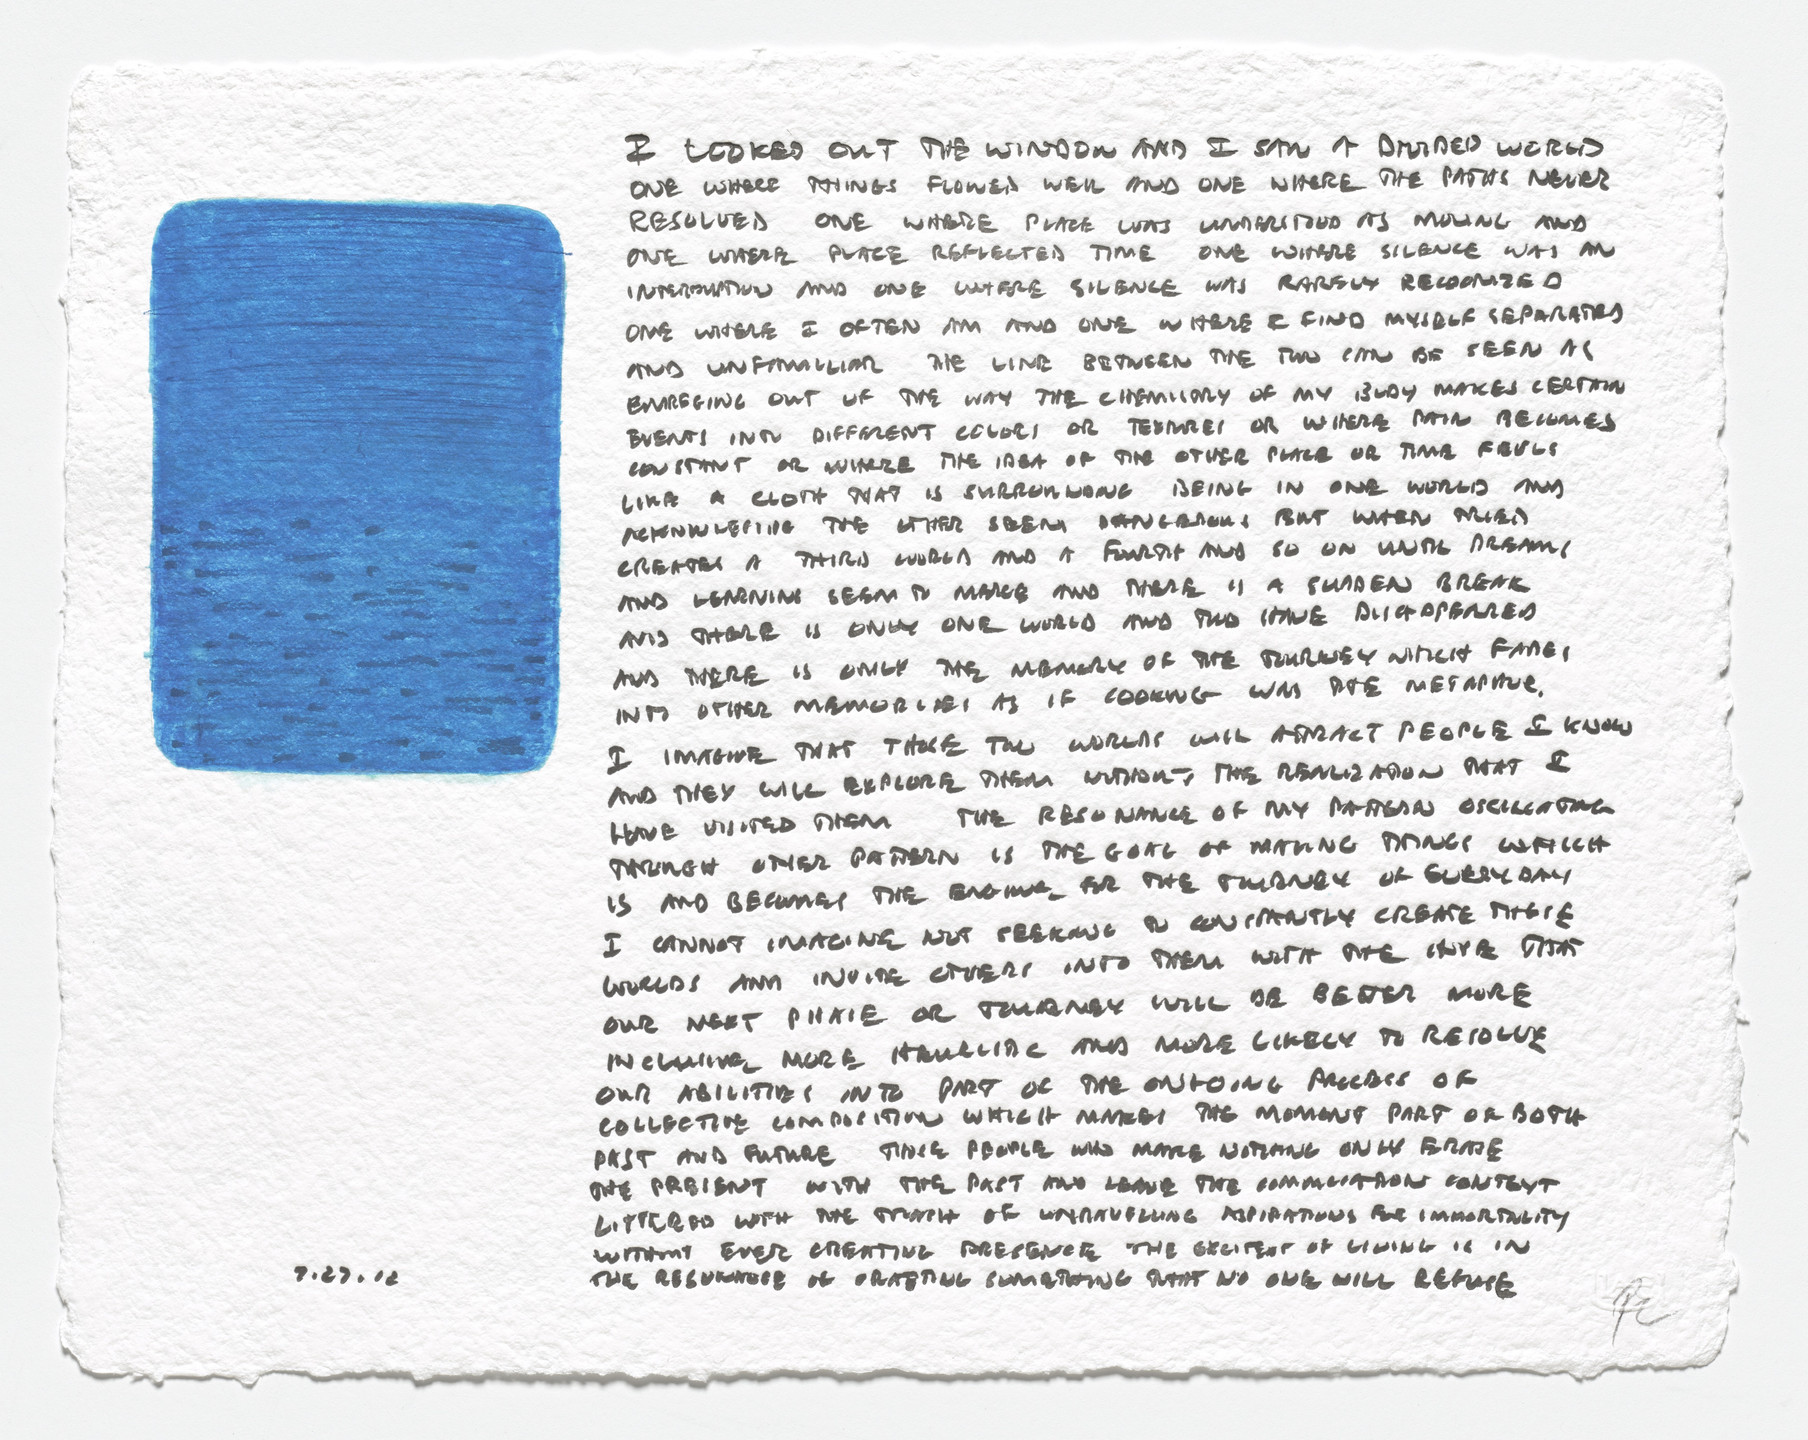 I LOOKED OUT THE WINDOW AND I SAW A DIVIDED WORLD
ONE WHERE THINGS FLOWED WELL AND ONE WHERE THE PATHS NEVER
RESOLVED ONE WHERE PLACE WAS UNDERSTOOD AS MOVING AND
ONE WHERE PLACE REFLECTED TIME ONE WHERE SILENCE WAS AN
AND ONE WHERE SILENCE WAS RARELY RECOGNIZED
ONE WHERE I OFTEN AM AND ONE WHERE I FIND MYSELF SEPARATED
AND UNFAMILIAR THE LINE BETWEEN THE TWO CAN BE SEEN AS
EMERGING OUT OF THE WAY THE CHEMISTRY OF MY BODY MAKES CERTAIN
EVENTS INTO DIFFERENT COLORS OR TEXTURES OR WHERE PAIN BECOMES
CONSTANT OR WHERE THE IDEA OF THE OTHER PLACE OR TIME FEELS
LIKE A CLOTH THAT IS SURROUNDING BEING IN ONE WORLD AND
THE OTHER SEEMS DANGEROUS BUT WHEN TRIED
CREATES A THIRD WORLD AND A FOURTH AND SO ON UNTIL DREAMS
AND LEARNING SEEM TO MERGE AND THERE IS A SUDDEN BREAK
AND THERE IS ONLY ONE WORLD AND TWO HAVE DISAPPEARED
AND THERE IS ONLY THE MEMORY OF THE JOURNEY WHICH FADES
INTO OTHER MEMORIES AS IF COOKING WAS THE METAPHOR.
I IMAGINE THAT THESE TWO WORLDS WILL ATTRACT PEOPLE I KNOW
AND THEY WILL EXPLORE THEM WITHOUT THE REALIZATION THAT I
HAVE VISITED THEM THE RESONANCE OF MY PATTERN OSCILLATING
THROUGH OTHER PATTERN IS THE GOAL OF MAKING THINGS WHICH
IS AND BECOMES THE ENGINE FOR THE JOURNEY OF EVERYDAY
I CANNOT IMAGINE NOT SEEKING TO CONSTANTLY CREATE THESE
WORLDS AND INVITE OTHERS INTO THEM WITH THE HOPE THAT
OUR NEXT PHASE OR JOURNEY WILL BE BETTER MORE
INCLUSIVE MORE AND MORE LIKELY TO RESOLVE
OUR ABILITIES INTO PART OF THE ONGOING PROCESS OF
COLLECTIVE COMPOSITION WHICH MAKES THE MOMENT PART OF BOTH
PAST AND FUTURE THOSE PEOPLE WHO MAKE NOTHING ONLY ERASE
THE PRESENT WITH THE PAST AND LEAVE THE CONTEXT
LITTERED WITH THE TRASH OF UNRAVELLING ASPIRATIONS FOR IMMORTALITY
WITHOUT EVER CREATING PRESENCE THE OF LIVING IS IN
THE RESONANCE OF CREATING SOMETHING THAT NO ONE WILL REFUSE
7.27.12